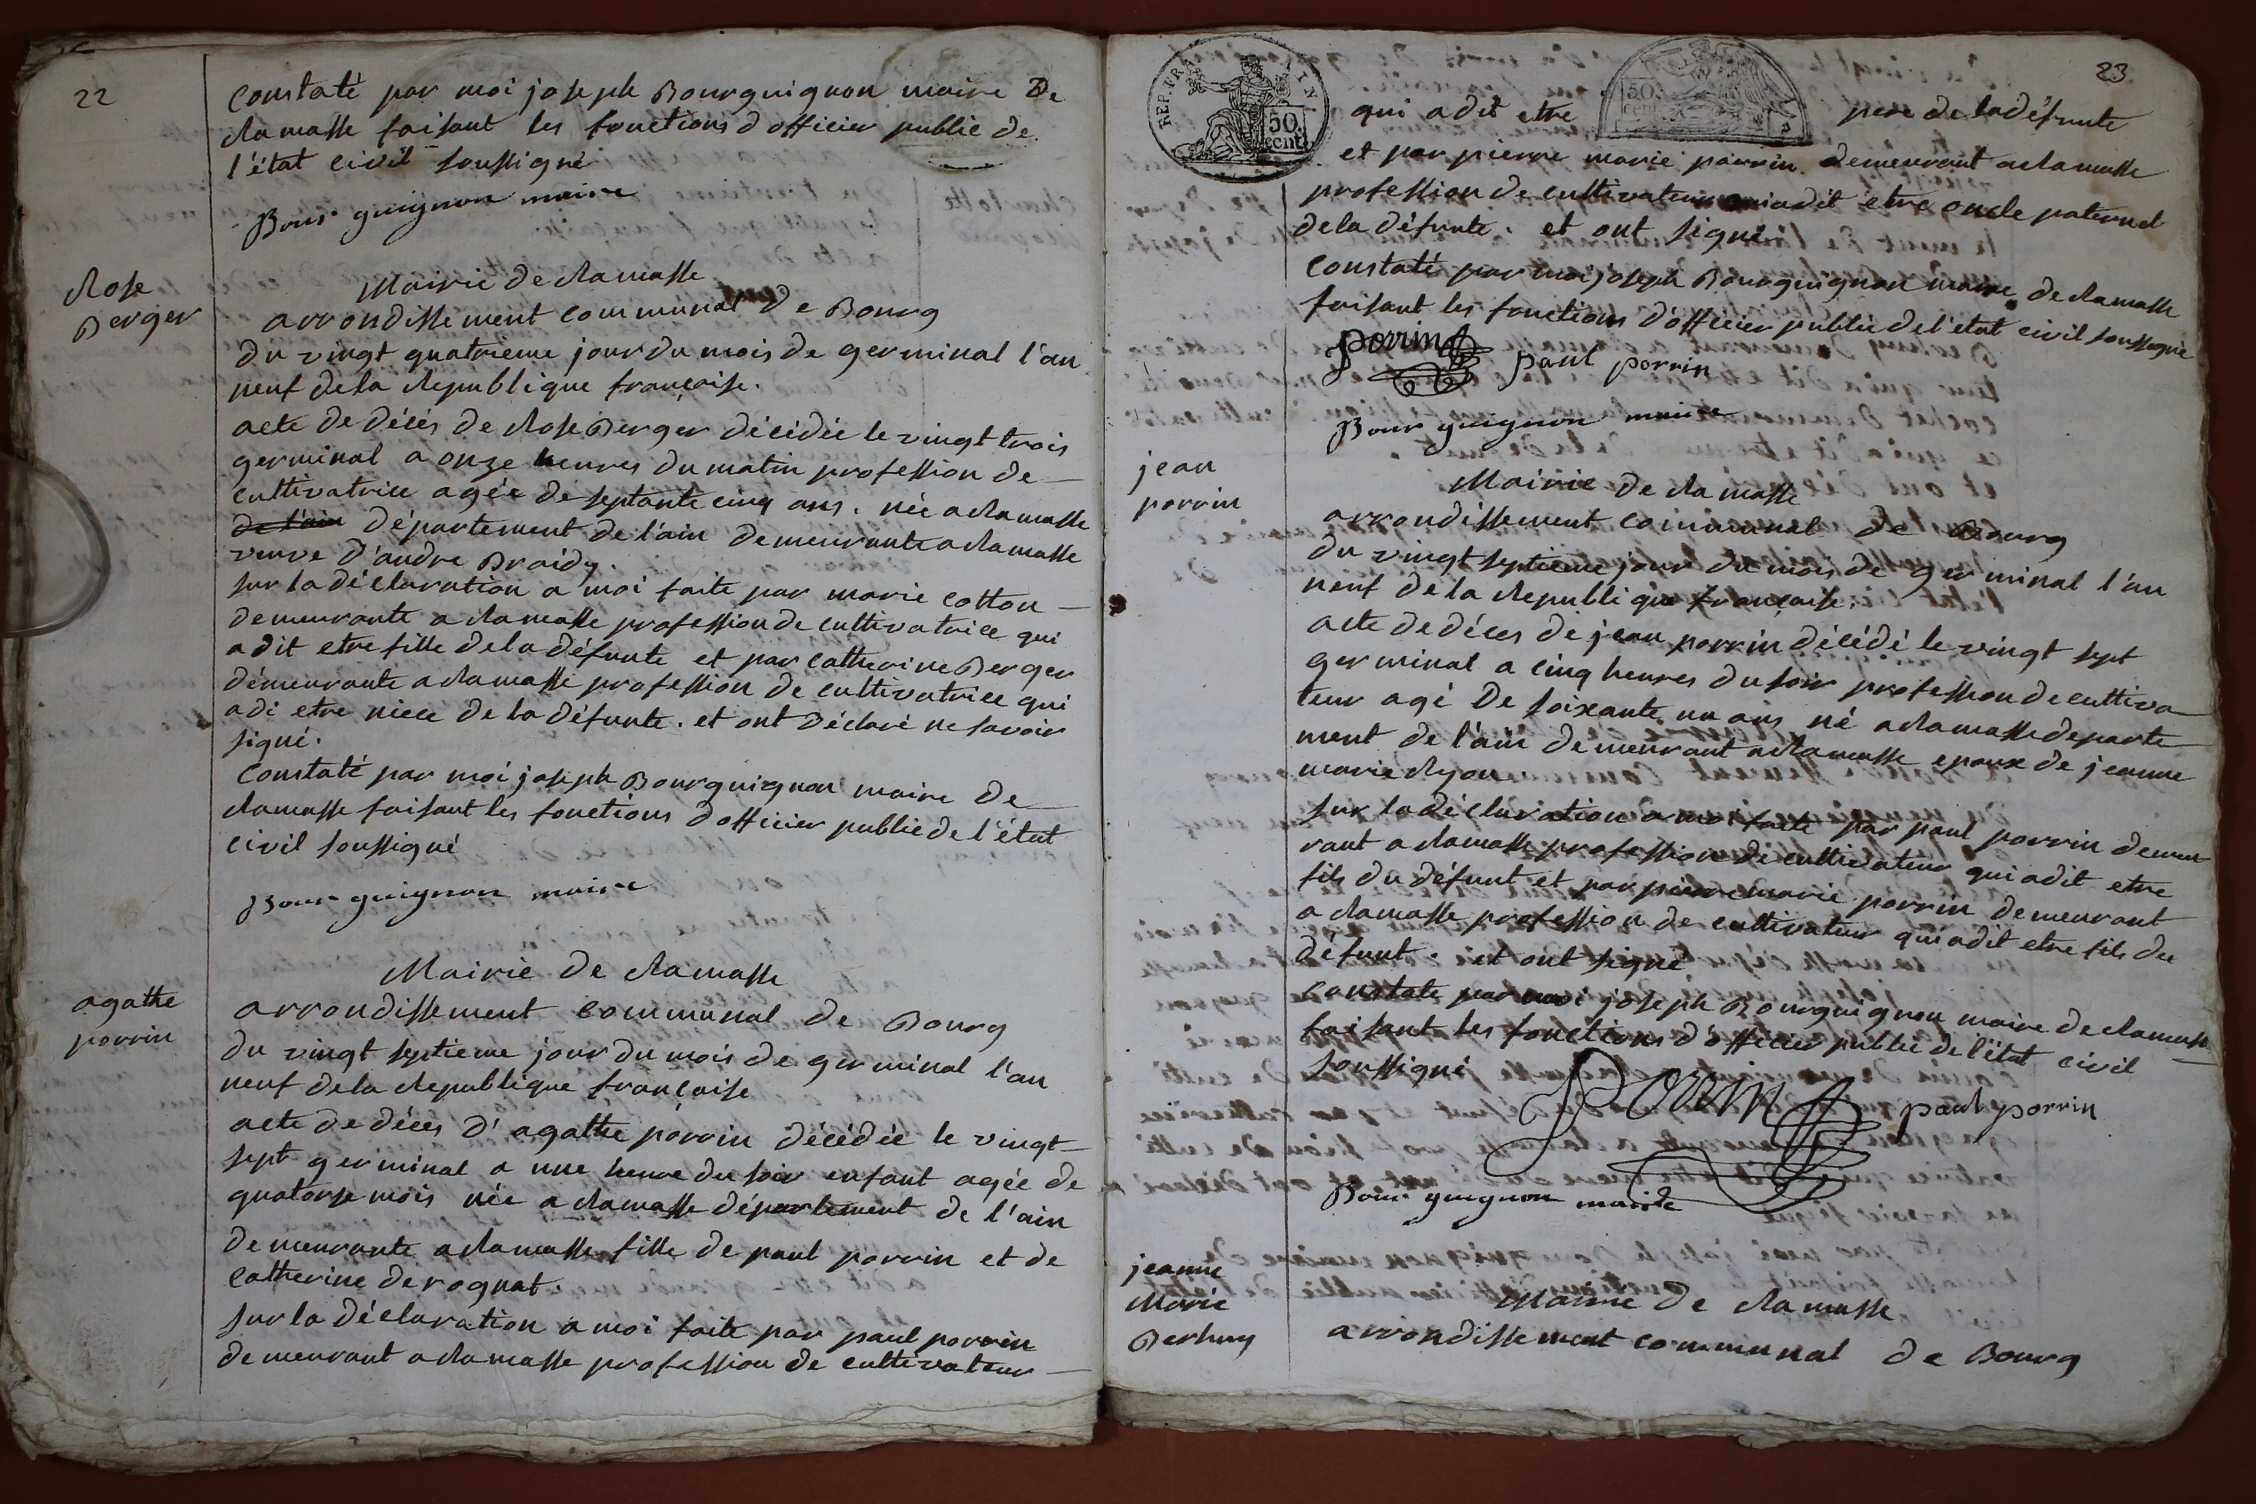 22
constaté par moi joseph Bourguignon maire De
Ramasse faisant les fonctions d officier public de
l'état civil soussigné
Bourguignon maire
Rose
Berger
Mairie de Ramasse
arrondissement communal De Bourg
du vingt quatrieme jour du mois de germinal l'an
neuf de la Republique française.
acte de décés de Rose Berger décédée le vingt trois
germinal a onze heures du matin profession de
cultivatrice agée de septante cinq ans. née a Ramasse
de l'ain département de l'ain demeurante a Ramasse
veuve d'andre Braidy.
sur la déclaration a moi faite par marie cotton
demeurante a Ramasse profession de cultivatrice qui
a dit etre fille de la défunte et par catherine Berger
démeurante a Ramasse profession de cultivatrice qui
a di etre niece de la défunte. et ont déclaré ne savoir
signé.
constaté par moi joseph Bourguignon maire de
Ramasse faisant les fonctions d officier public de l'état
civil soussigné
Bourguignon maire
agathe
porrin
Mairie de Ramasse
arrondissement communal de Bourg
du vingt septieme jour du mois de germinal l'an
neuf de la Republique française
acte de décés d'agathe porrin décédée le vingt
sept germinal a une heure du soir enfant agée de
quatorse mois née a Ramasse département de l'ain
demeurante a Ramasse fille de paul porrin et de
catherine derognat.
sur la déclaration a moi faite par paul porrin
demeurant a Ramasse profession de cultivateur
23
REP. FRA
50
cent
50
cent
qui a dit etre pere de la défunte
et par pierre marie porrin demeurant a Ramasse
profession de cultivateur qui a dit etre oncle paternel
de la défunte. et ont signé.
constaté par moi joseph Bourguignon maire de Ramasse
faisant les fonctions d'officier public de l'état civil soussigné
porrin
paul porrin
Bourguignon maire
jean
porrin
Mairie de Ramasse
arrondissement communal de Bourg
du vingt septieme jour du mois de germinal l'an
neuf de la Republique française.
acte de déces de jean porrin décédé le vingt sept
germinal a cinq heures du soir profession de cultiva
teur agé De soixante un ans né a Ramasse departe
ment de l'ain demeurant a Ramasse epoux de jeanne
marie Ryon
sur la déclaration a moi faite par paul porrin demeu
rant a Ramasse profession de cultivateur qui a dit etre
fils du défunt et par pierre marie porrin demeurant
a Ramasse profession de cultivateur qui a dit etre fils du
défunt. et ont signé
constaté par moi joseph Bourguignon maire de Ramasse
faisant les fonctions d'officier public de l'état civil
soussigné
Porrin
paul porrin
Bourguignon maire
jeanne
Marie
Mairie de Ramasse
arrondissement communal de Bourg